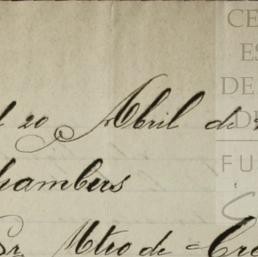 20 Abril de
Chambers
Sr. Mtro de Cre
CE
ES
DE
DE
FU